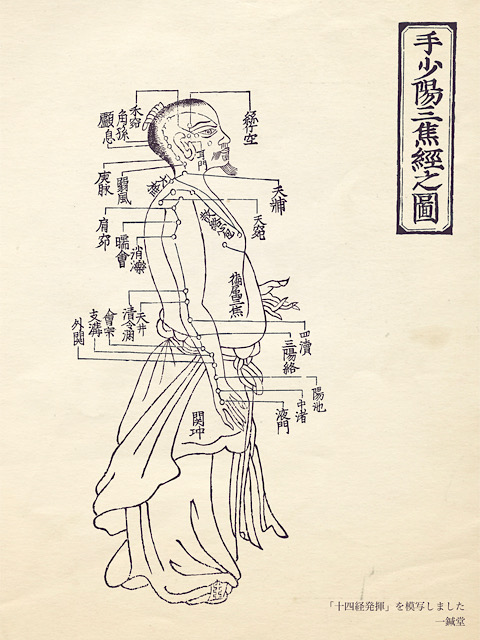 手少陽三焦經之圖
絲竹空
禾窌
角孫
顱息
耳門
瘈脉
翳風
天牖
天窌
肩窌
臑會
消濼
天井
清冷淵
四瀆
三陽絡
會宗
支溝
外関
陽池
中渚
液門
関冲
「十四経発揮」を模写しました
一鍼堂